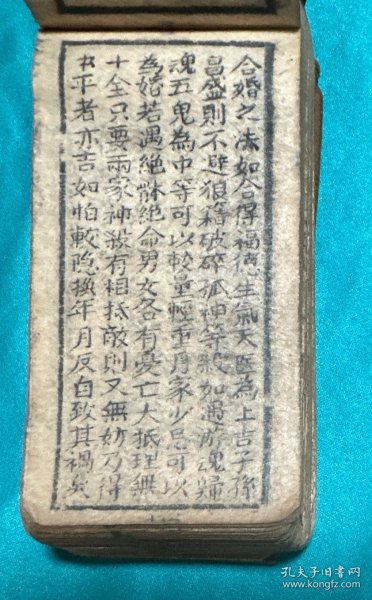 合婚之法如合得福德生氣天醫為上吉子孫
昌盛則不避狼藉破碎孤神等殺如遇游魂歸
魂五鬼為中等可以較量輕重身家少忌可以
為婚若遇絶體絶命男女各有憂亡大抵理無
十全只要兩家神殺有相抵敵則又無妨乃得
中平者亦吉如怕較隐換年月反自致其禍矣
孔夫子旧书网
www.kongfz.com